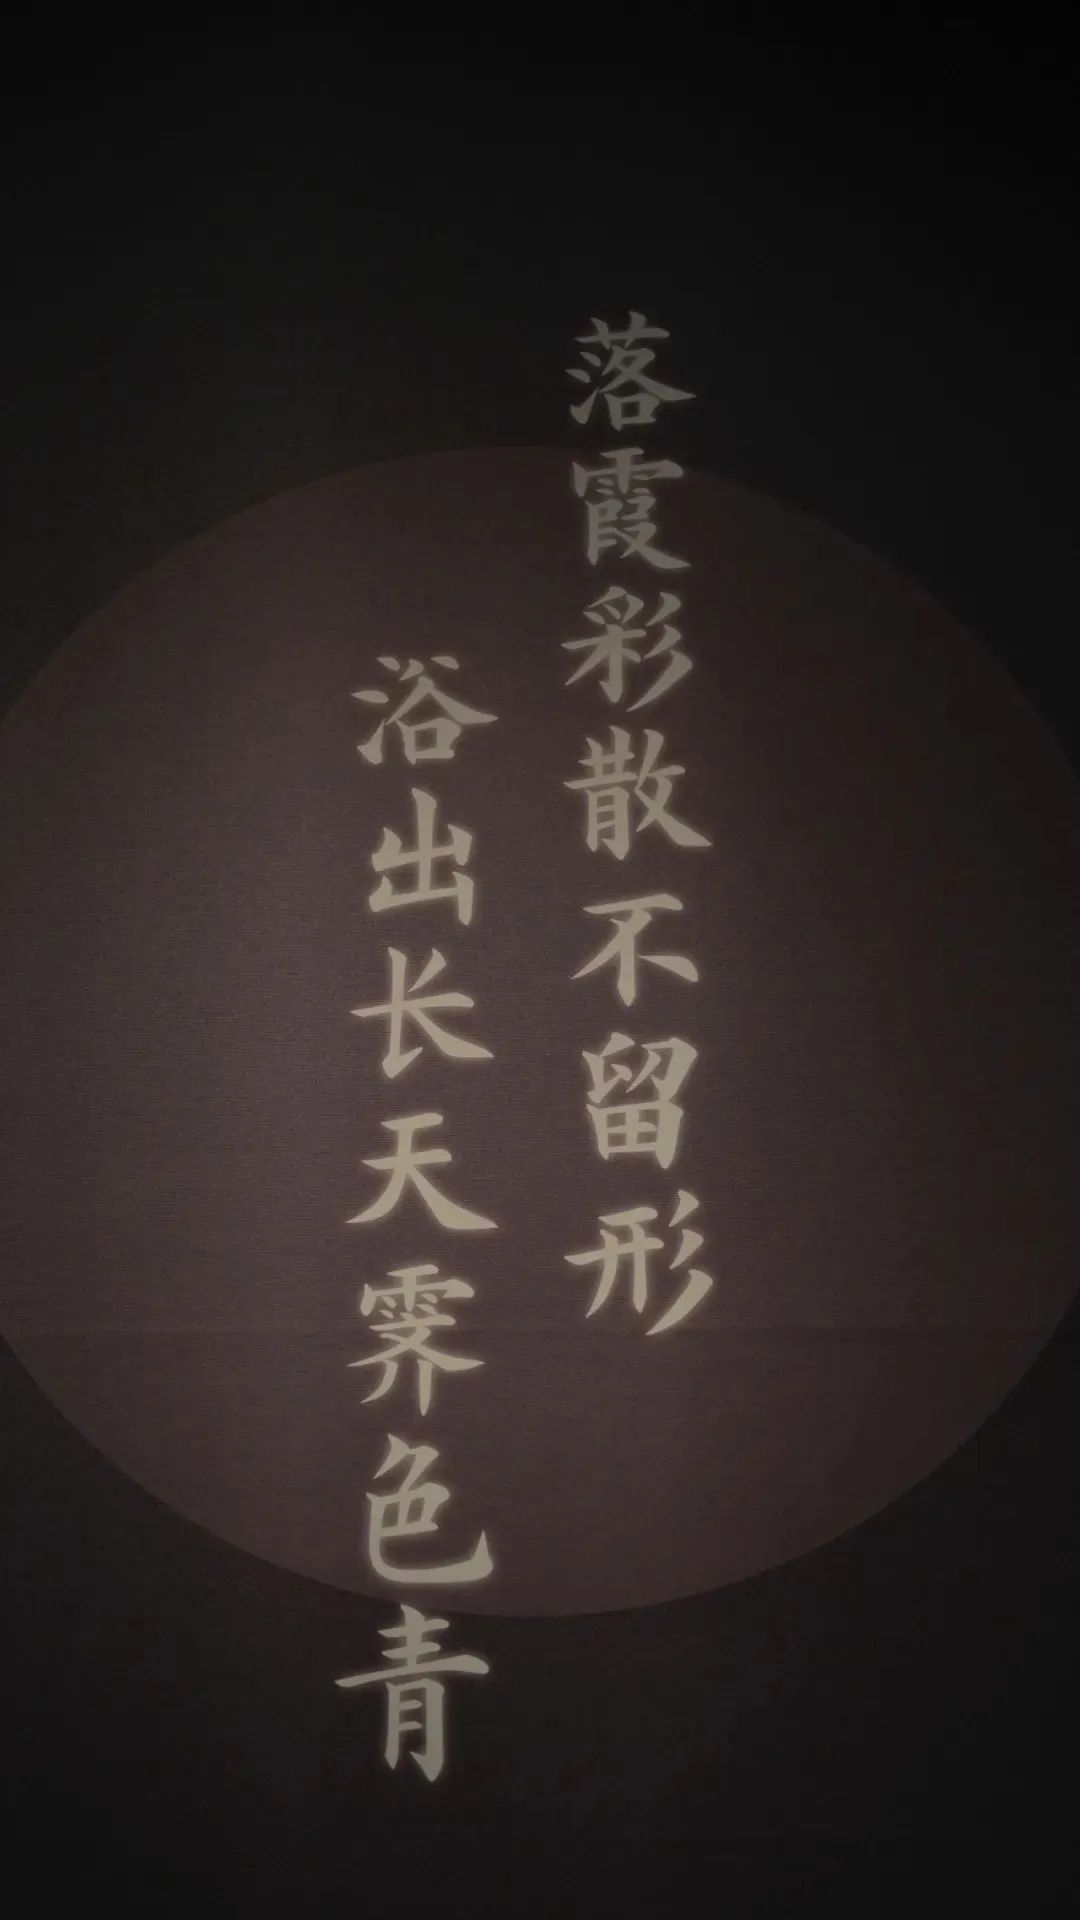 落霞彩散不留形
浴出长天霁色青